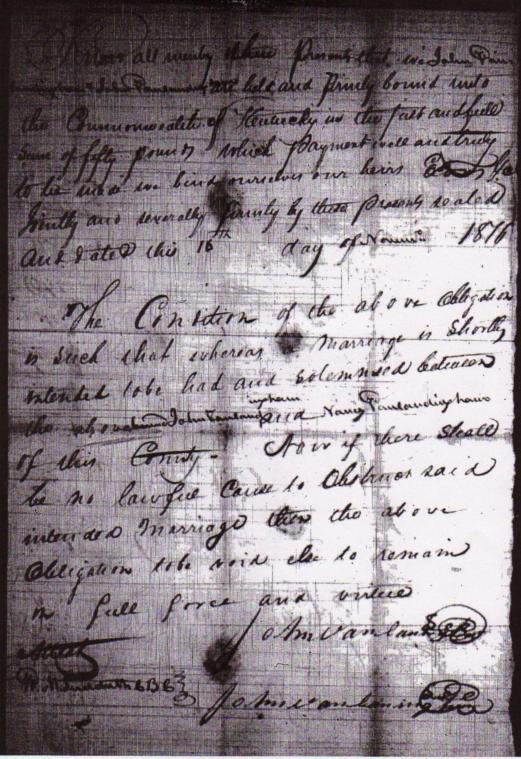 Know all men by these Presents that we John
John Vanlandin are held and firmly bound unto
the Commonwealth of Kentucky in the Just and full
sum of fifty pounds which payment well and truly
to be made we bind ourselves our heirs
Jointly and severally firmly by these presents sealed
and dated this 16th day of 1816
The Condition of the above Obligation
is such that whereas Marriage is Shortly
intended tobe had and solemnised between
the above John Vanlandingham and Nancy Vanlandingham
of this County - Now if there shall
be no lawful Cause to Obstruct said
intended Marriage then the above
Obligation tobe void else to remain
in full force and virtue
John Vanland
Attest
John Vanlandin